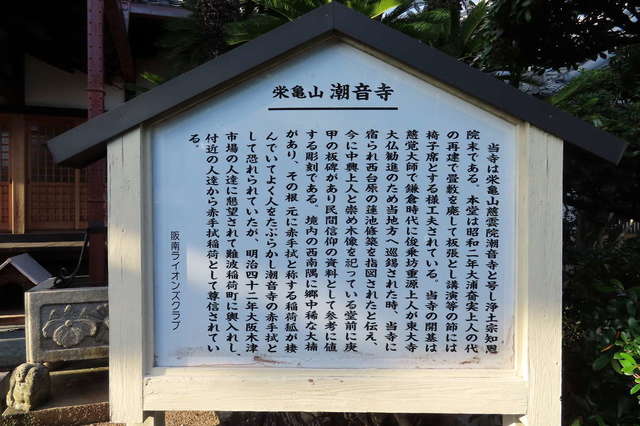 栄亀山 潮音寺
当寺は栄亀山慈雲院潮音寺と号し浄土宗知恩
院末である。本堂は昭和二年大浦奮実上人の代
の再建で畳数を廃して板張とし講演等の節には
椅子席とする様工夫されている。当寺の開基は
慈覚大師で鎌倉時代に俊乗坊重源上人が東大寺
大仏勧進のため当地方へ巡錫された時、当寺に
宿られ西台原の蓮池修築を指図されたと伝え、
今に中興上人と崇め木像を祀っている堂前に庚
甲の板碑があり民間信仰の資料として参考に値
する彫刻である。境内の西南隅に郷中稀な大楠
があり、その根元に赤手拭と称する稲荷狐が棲
んでいてよく人をたぶらかし潮音寺の赤手拭と
して恐れられていたが、明治四十二年大阪木津
市場の人達に懇望されて難波稲荷町に輿入れし、
付近の人達から赤手拭稲荷として尊信されてい
る。
阪南ライオンズクラブ